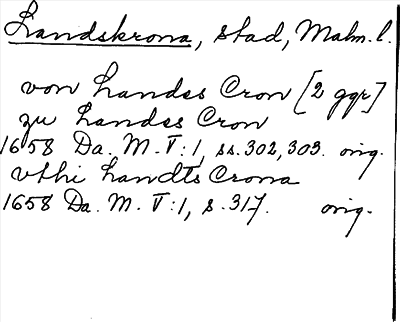 Landskrona, stad, Malm. l.
von Landss Cron [2 ggr]
zu Landss Cron
1658 Da. M. V:1, ss. 302, 303. orig.
vthi Landts Crona
1658 Da. M. V:1, s. 317. orig.